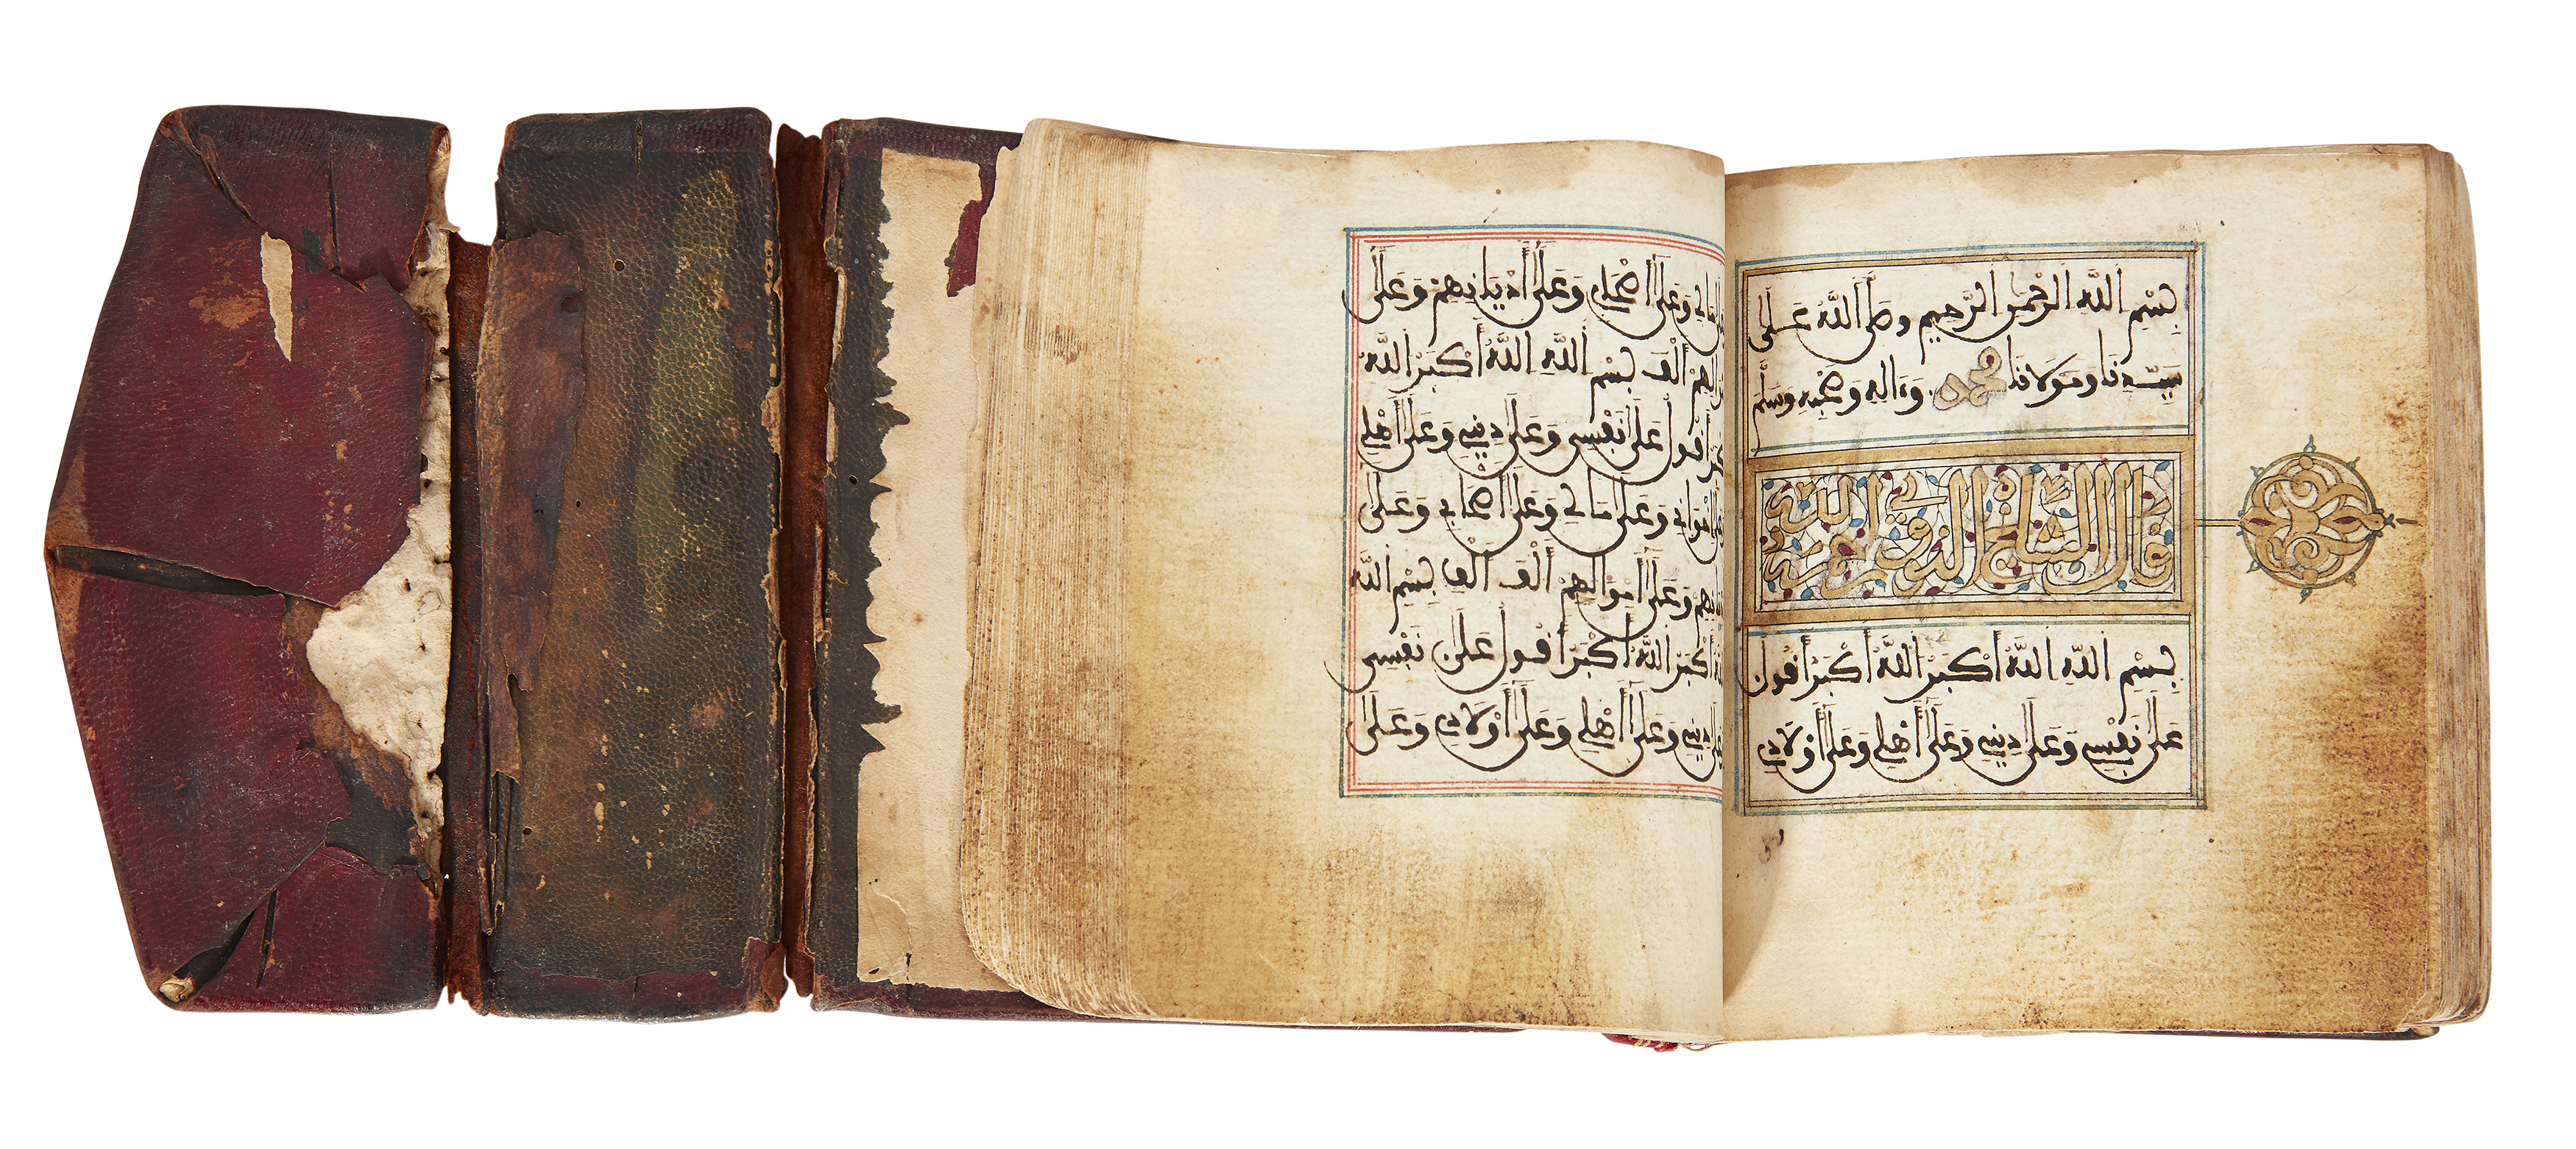 بِسْمِ اللَّهِ الرَّحْمٰنِ الرَّحِيمِ وَصَلَّى اللَّهُ عَلَى
سَيِّدِنَا وَمَوْلَانَا مُحَمَّدٍ وَءَالِهِ وَصَحْبِهِ وَسَلَّمَ
قال الشيخ النووي رحمه الله
بِسْمِ اللَّهِ اللَّهُ أَكْبَرُ اللَّهُ أَكْبَرُ أَقُولُ
عَلَى نَفْسِي وَعَلَى دِينِي وَعَلَى أَهْلِي وَعَلَى أَوْلَادِي
مَالِي وَعَلَى أَصْحَابِي وَعَلَى أَدْيَانِهِمْ وَعَلَى
أَمْوَالِهِمْ أَلْفَ بِسْمِ اللَّهِ اللَّهُ أَكْبَرُ اللَّهُ
أَكْبَرُ أَقُولُ عَلَى نَفْسِي وَعَلَى دِينِي وَعَلَى أَهْلِي
وَعَلَى وَعَلَى مَالِي وَعَلَى أَصْحَابِي وَعَلَى
أَدْيَانِهِمْ وَعَلَى أَمْوَالِهِمْ أَلْفَ أَلْفِ بِسْمِ اللَّهِ
اللَّهُ أَكْبَرُ اللَّهُ أَكْبَرُ أَقُولُ عَلَى نَفْسِي
وَعَلَى دِينِي وَعَلَى أَهْلِي وَعَلَى أَوْلَادِي وَعَلَى